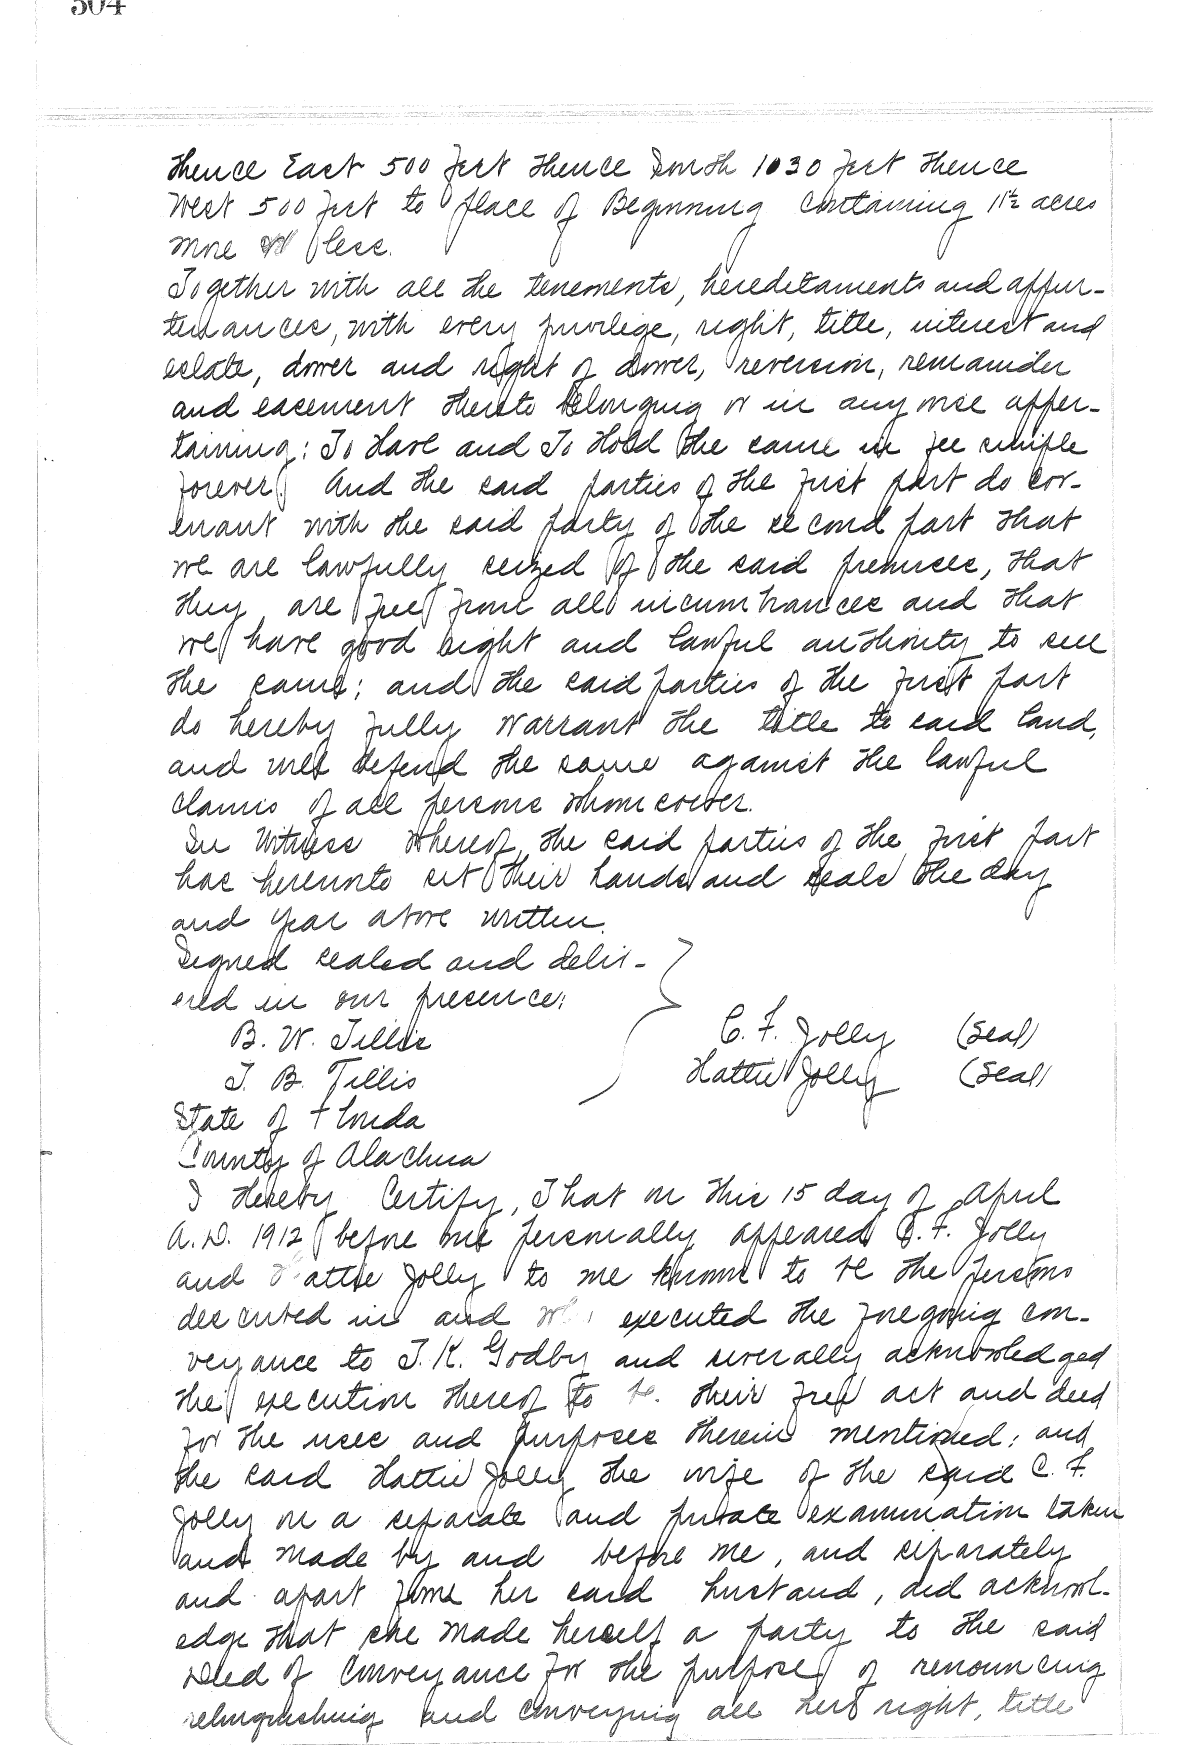 504
Thence East 500 feet Thence South 1030 feet Thence
West 500 feet to place of Beginning Containing 11½ acres
more or less.
Together with all the tenements, hereditaments and appur-
tenances, with every privilege, right, title, interest and
estate, dower and right of dower, reversion, remainder
and easement thereto belonging or in anywise apper-
taining: To Have and To Hold the same in fee simple
forever. And the said parties of the first part do cov-
enant with the said party of the second part that
we are lawfully seized of the said premises, that
they are free from all incumbrances and that
we have good right and lawful authority to sell
the same; and the said parties of the first part
do hereby fully warrant the title to said land,
and will defend the same against the lawful
claims of all persons whomsoever.
In Witness Whereof, the said parties of the first part
has hereunto set their hands and seals the day
and year above written.
Signed sealed and deliv-
ered in our presence:
B. W. Tillis
C. F. Jolly (Seal)
T. B. Tillis
Hattie Jolly (Seal)
State of Florida
County of Alachua
I Hereby Certify, That on this 15 day of April
A.D. 1912 before me personally appeared C. F. Jolly
and Hattie Jolly to me known to be the persons
described in and who executed the foregoing con-
veyance to T. K. Godby and severally acknowledged
the execution thereof to be their free act and deed
for the uses and purposes therein mentioned; and
the said Hattie Jolly the wife of the said C. F.
Jolly on a separate and private examination taken
and made by and before me, and separately
and apart from her said husband, did acknowl-
edge that she made herself a party to the said
Deed of Conveyance for the purpose of renouncing
relinquishing and conveying all her right, title